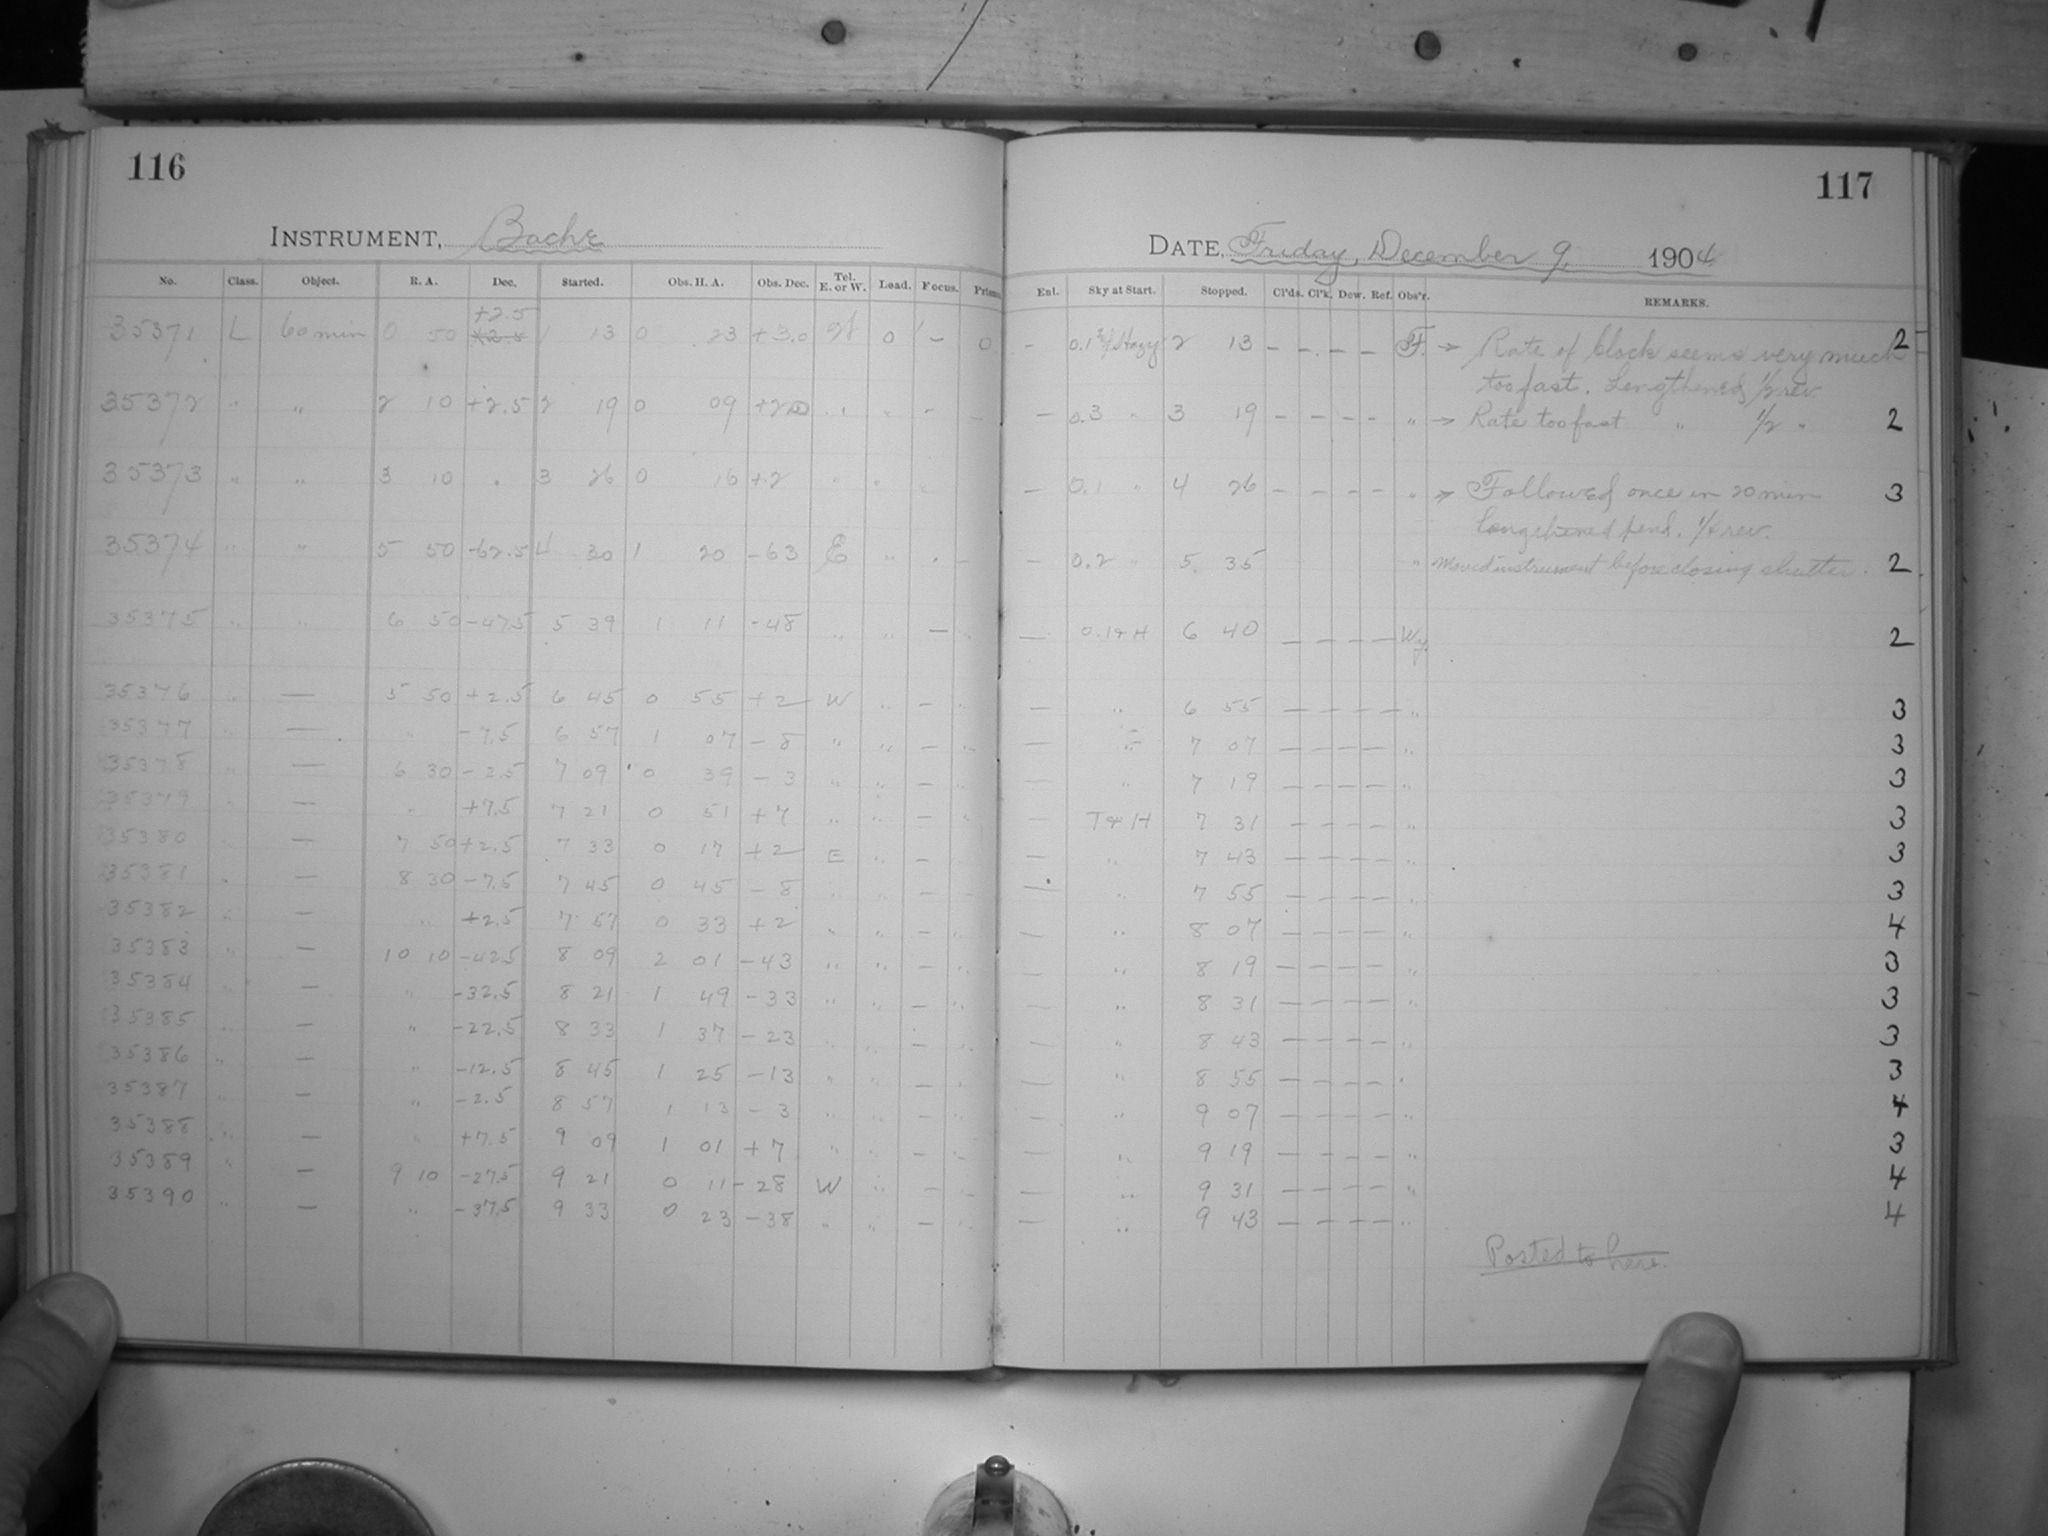 116
117
INSTRUMENT, Bache
DATE, Friday, December 9, 1904
No. Class. Object. R. A. Dec. Started. Obs. H. A. Obs. Dec. Tel. E. or W. Load. Focus. Prism
Ent. Sky at Start. Stopped. Cl'ds. Cl'k. Dew. Ref. Obs'r. REMARKS.
+2.5
35371 L 60 min 0 50 1 13 0 23 +3.0 W 0 - 0 - Hazy 2 13 - - - - F. → Rate of clock seems very much 2
too fast. Lengthened 1/2 rev.
35372 " " 2 10 +2.5 2 19 0 09 " " " - - 0.3 " 3 19 - - - - " → Rate too fast " 1/2 " 2
35373 " " 3 10 " 3 26 0 16 +2 " " - 0.1 " 4 26 - - - - " → Followed once in 20 min 3
pend. rev.
35374 " " 5 50 -62.5 4 30 1 20 -63 E " " - - 0.2 " 5 35 " Moved instrument before closing shutter. 2
35375 " " 6 50 -47.5 5 39 1 11 -48 " " - " - 0.1 & H 6 40 - - - - Wy. 2
35376 " — 5 50 +2.5 6 45 0 55 +2 W " - " - " 6 55 - - - - " 3
35377 " — " -7.5 6 57 1 07 -8 " " - " - " 7 07 - - - - " 3
35378 " — 6 30 -2.5 7 09 0 39 -3 " " - " - " 7 19 - - - - " 3
35379 " — " +7.5 7 21 0 51 +7 " " - " - T & H 7 31 - - - - " 3
35380 " — 7 50 +2.5 7 33 0 17 +2 E " - " - " 7 43 - - - - " 3
35381 " — 8 30 -7.5 7 45 0 45 -8 " " - - - " 7 55 - - - - " 3
35382 " — " +2.5 7 57 0 33 +2 " " - " - " 8 07 - - - - " 4
35383 " — 10 10 -42.5 8 09 2 01 -43 " " - " - " 8 19 - - - - " 3
35384 " — " -32.5 8 21 1 49 -33 " " - " - " 8 31 - - - - " 3
35385 " — " -22.5 8 33 1 37 -23 " " - " - " 8 43 - - - - " 3
35386 " — " -12.5 8 45 1 25 -13 " " - " - " 8 55 - - - - " 3
35387 " — " -2.5 8 57 1 13 -3 " " - " - " 9 07 - - - - " 4
35388 " — " +7.5 9 09 1 01 +7 " " - " - " 9 19 - - - - " 3
35389 " — 9 10 -27.5 9 21 0 11 -28 W " - " - " 9 31 - - - - " 4
35390 " — " -37.5 9 33 0 23 -38 " " - " - " 9 43 - - - - " 4
Posted to here.